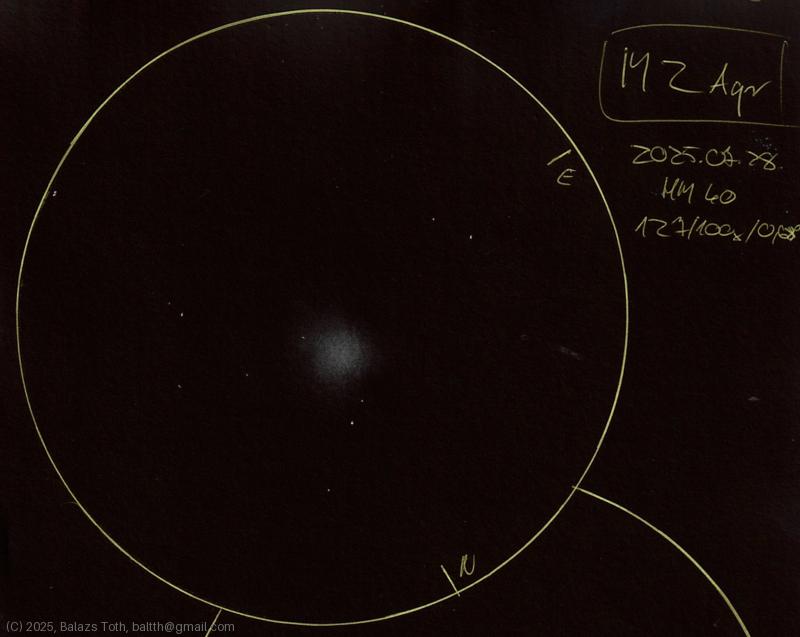 M 2 Aqr
2025.07.28.
HM 60
127/100x/0,68°
E
N
(C) 2025, Balazs Toth, baltth@gmail.com